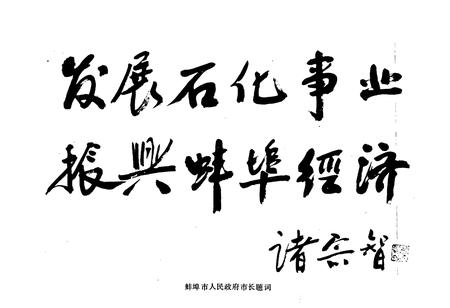 发展石化事业
振興蚌埠經济
諸宗智
蚌埠市人民政府市长题词